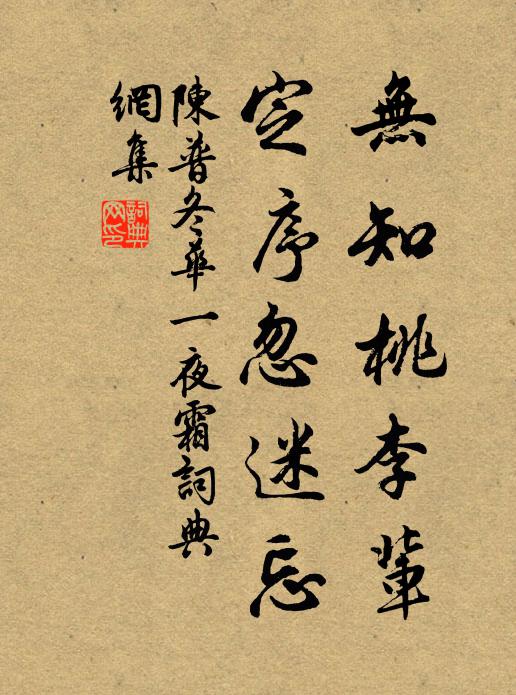 無知桃李輩
定序忽迷忘
陳普冬華一夜霜詞典
網集
詞典
网印